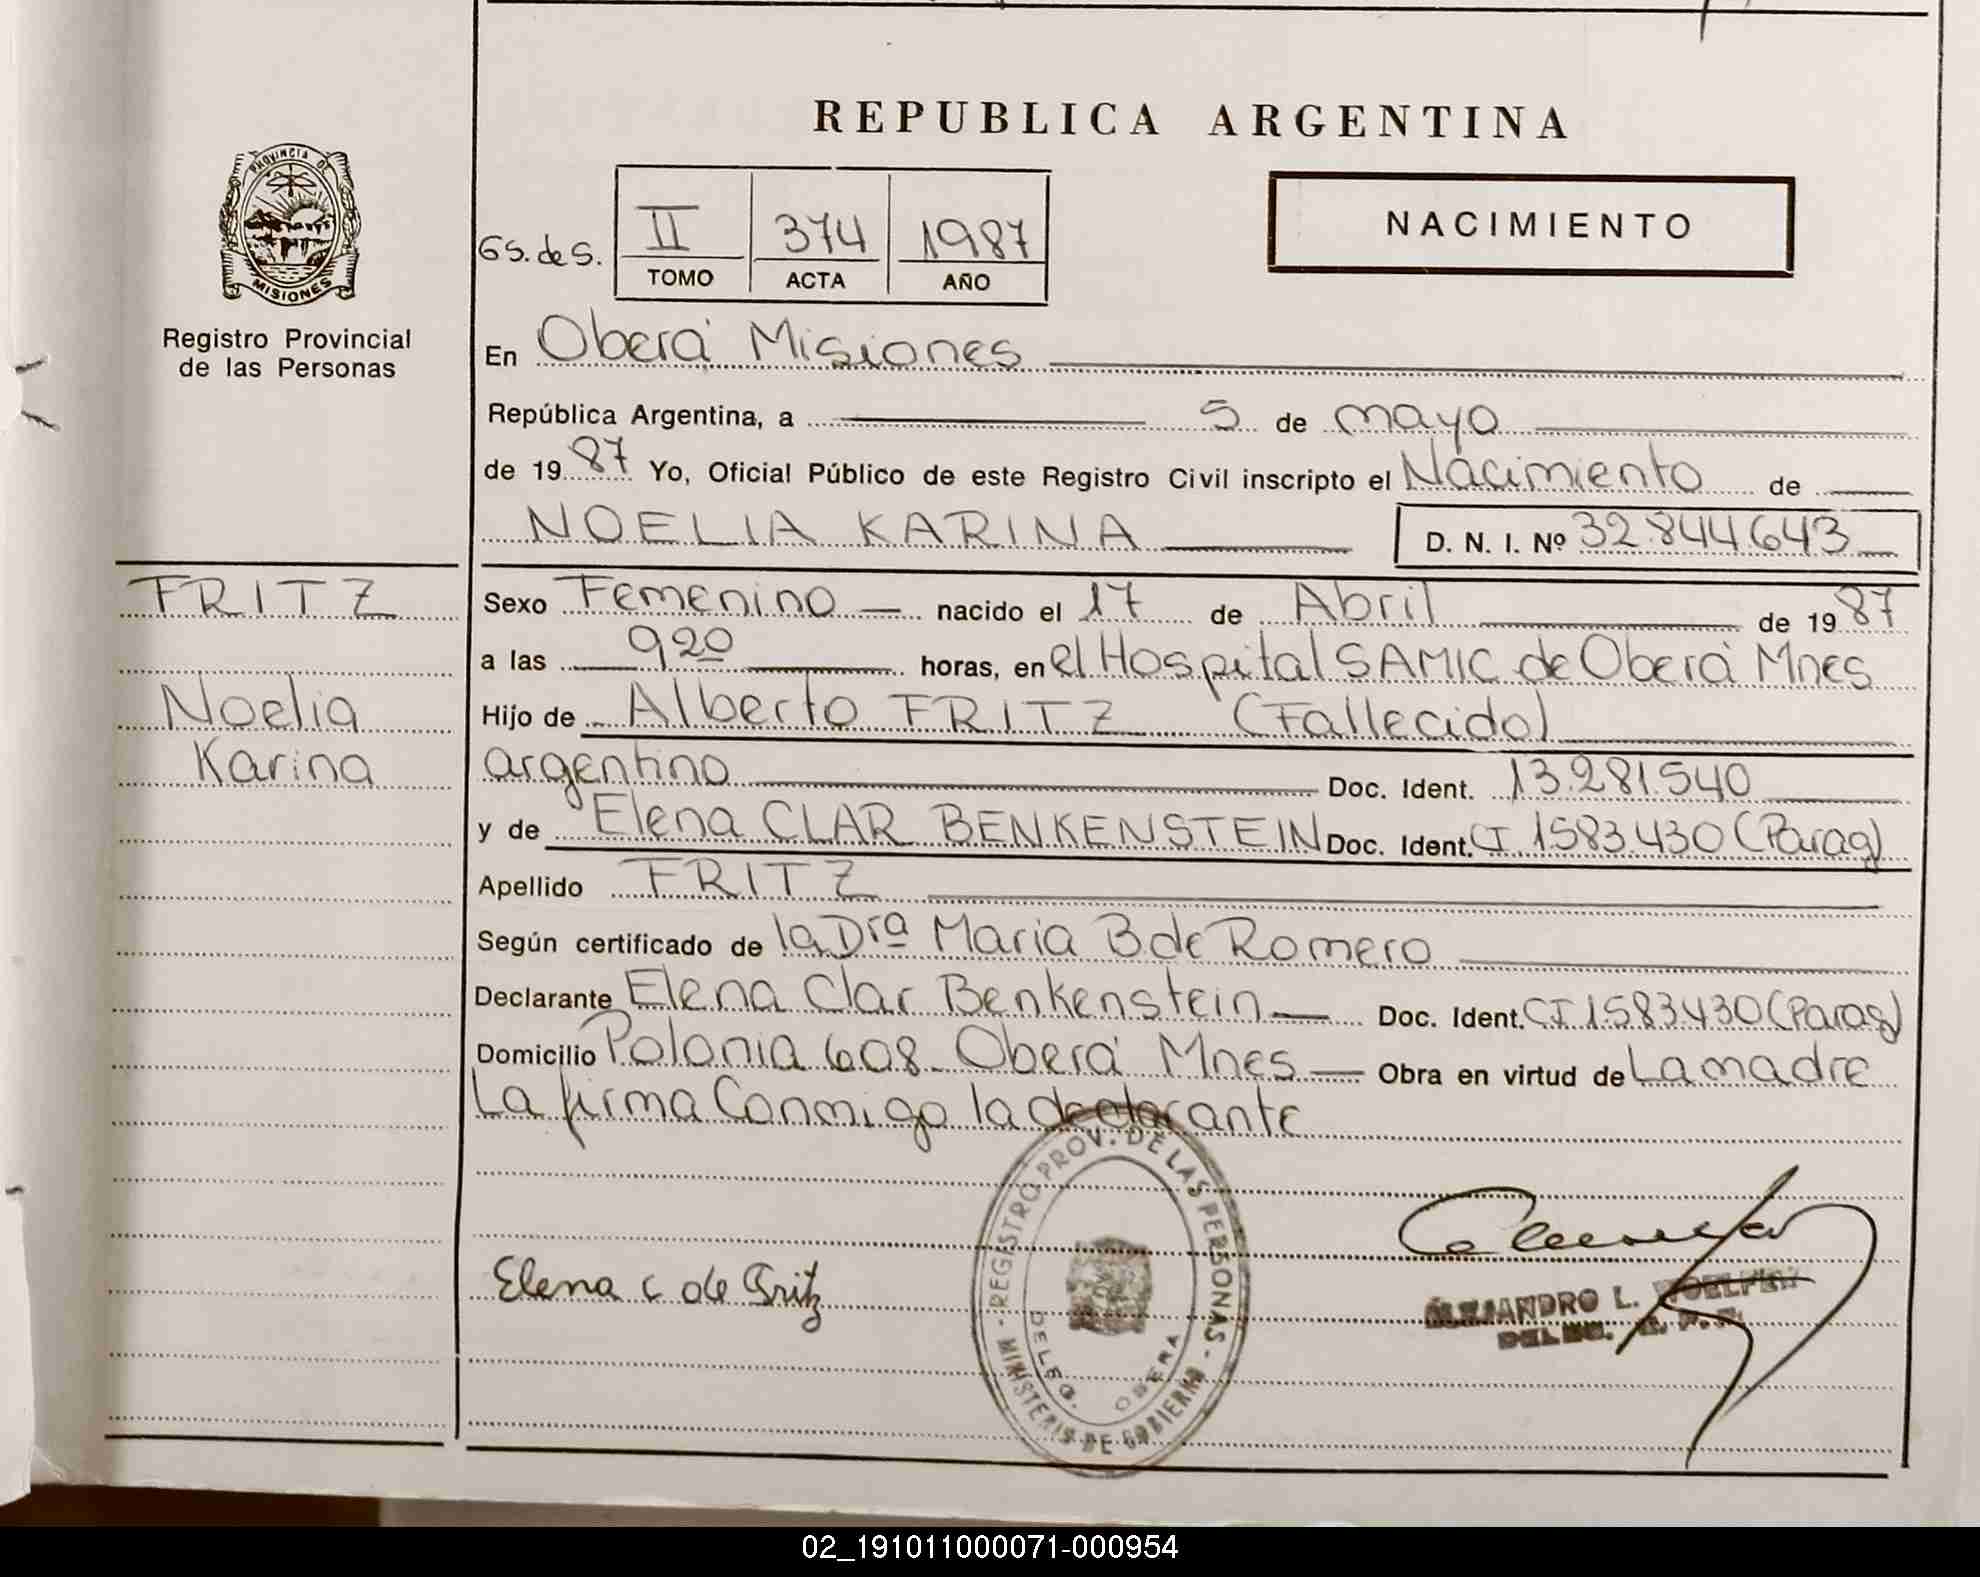 REPUBLICA ARGENTINA
PROVINCIA DE
MISIONES
Registro Provincial
de las Personas
GS. de S.
II 374 1987
TOMO ACTA AÑO
NACIMIENTO
En Oberá Misiones
República Argentina, a 5 de mayo
de 19 87 Yo, Oficial Público de este Registro Civil inscripto el Nacimiento de
NOELIA KARINA D. N. I. Nº 32844643
FRITZ
Noelia
Karina
Sexo Femenino nacido el 17 de Abril de 19 87
a las 9 20 horas, en el Hospital SAMIC de Oberá Mnes
Hijo de Alberto FRITZ (Fallecido)
argentino Doc. Ident. 13.281.540
y de Elena CLAR BENKENSTEIN Doc. Ident. CI 1583.430 (Parag)
Apellido FRITZ
Según certificado de la Drª Maria B. de Romero
Declarante Elena Clar Benkenstein Doc. Ident. CI 1583.430 (Parag)
Domicilio Polonia 608 Oberá Mnes Obra en virtud de La madre
La firma Conmigo la declarante
REGISTRO PROV. DE LAS PERSONAS - MINISTERIO DE GOBIERNO -
DELEG. OBERA
Elena C de Fritz
ALEJANDRO L.
02_191011000071-000954